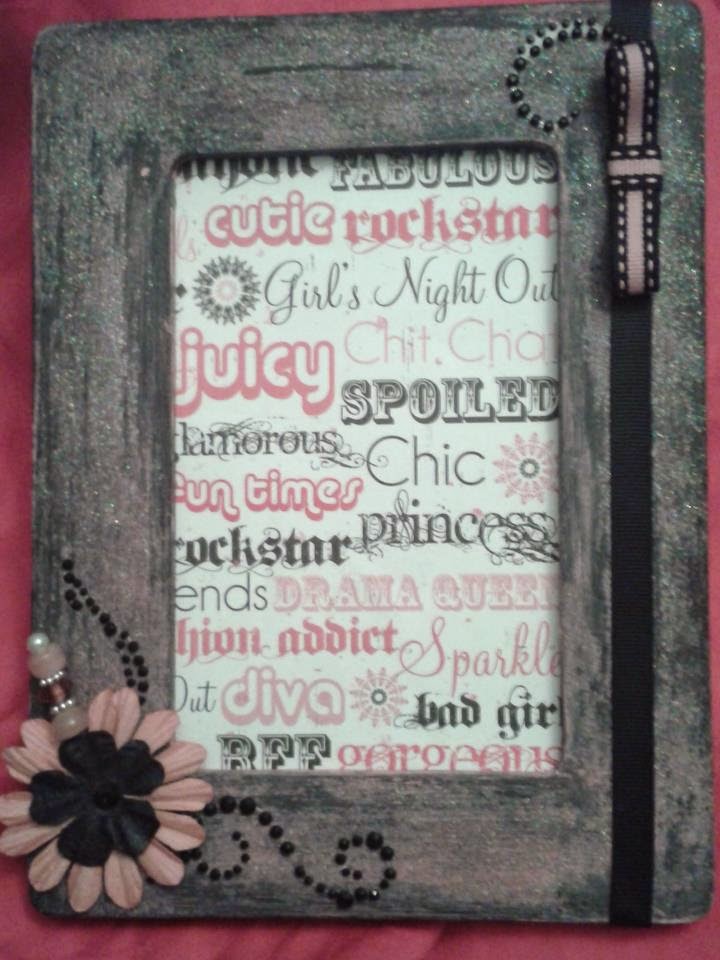 FABULOUS
cutie rockstar
Girl's Night Out
juicy Chit Cha
SPOILED
lamorous
Chic
fun times
princess
rockstar
ends DRAMA QUEEN
hion addict
Sparkle
Out diva
bad girl
BFF gorgeous